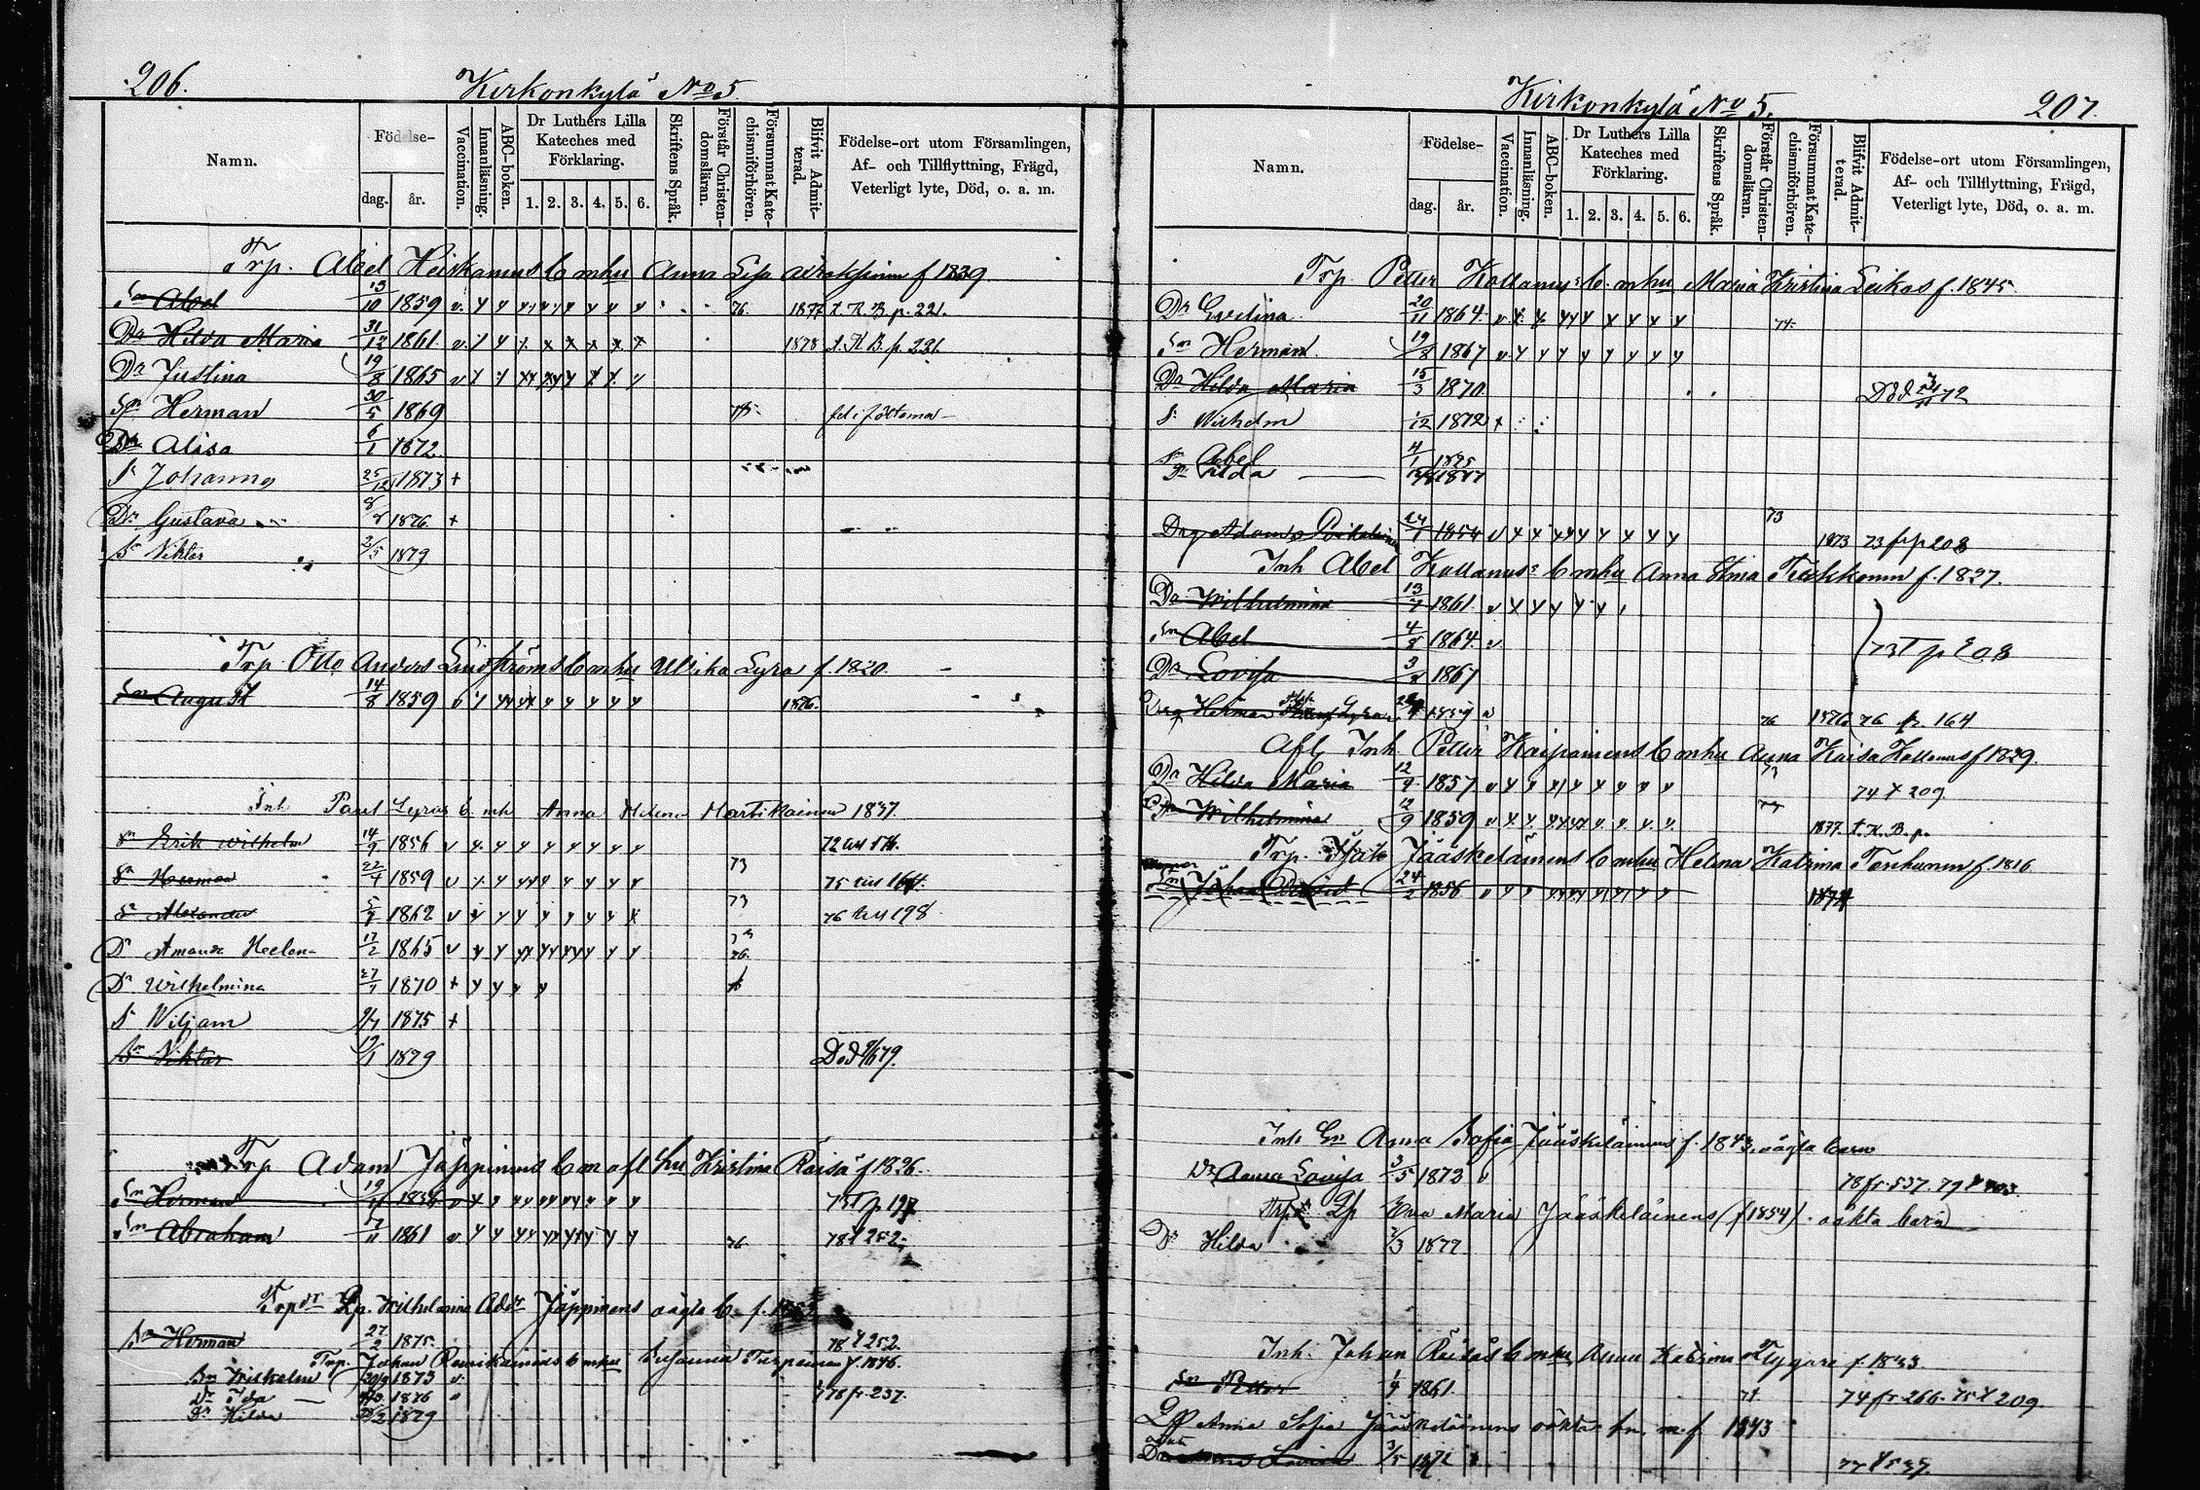 206.
Kirkonkylä No 5.
Namn.
Födelse-
dag.
år.
Vaccination.
Innanläsning.
ABC-boken.
Dr Luthers Lilla Kateches med Förklaring.
1. 2. 3. 4. 5. 6.
Skriftens Språk.
Förstår Christendomsläran.
Försummat Katechismiförhören.
Blifvit Admitterad.
Födelse-ort utom Församlingen,
Af- och Tillflyttning, Frägd,
Veterligt lyte, Död, o. a. m.
Trp. Abel Heiskanens b m hu Anna Lisa f 1839.
Sn Abel 13/10 1859 v. 76. 1877 t. K. B. p. 221.
Dr Hilda Maria 31/12 1861 v. 1878 t. K. B. p. 231.
Dr Justina 19/8 1865 v
Sn Herman 30/5 1869
Dr Alisa 6/1 1872
S. Johannes 25/12 1873 +
Dr Gustava 8/8 1876 +
Sn Viktor 2/5 1879
Trp. Otto Anders Lindströms b m hu Ulrika Lyra f. 1820.
Sn August 14/8 1859 1876.
Inh Paul Lyras b. mh Anna Helena Martikainen 1837.
Sn Erik Wilhelm 14/9 1856 v
Sn Herman 22/4 1859 v 73 75 till 164.
Sn Alexander 5/9 1862 v 73 76 till 198.
Dr Amanda Heelen 17/2 1865 v 76.
Dr Wilhelmina 27/1 1870 +
S Wiljam 9/7 1875 +
Sn Viktor 19/1 1879 Död 79.
Trp Adam Jäppinens b m afl hu Kristina Räisä f 1836.
Sn Herman 19/11 1858 v
Sn Abraham 17/11 1861 v. 76 78 t 252
Trp dr Lp. Wilhelmina Ads dr Jäppinens oägta b. f.
Sn Herman 27/2 1875. 78 t 252.
Trp. Johan b m hu Susanna Turpeinen f. 1846.
Sn Wilhelm 1873 v. 78 fr. 237.
Dr Ida 1876 v
Dr Hilda 1879
Kirkonkylä No 5.
207.
Namn.
Födelse-
dag.
år.
Vaccination.
Innanläsning.
ABC-boken.
Dr Luthers Lilla Kateches med Förklaring.
1. 2. 3. 4. 5. 6.
Skriftens Språk.
Förstår Christendomsläran.
Försummat Katechismiförhören.
Blifvit Admitterad.
Födelse-ort utom Församlingen,
Af- och Tillflyttning, Frägd,
Veterligt lyte, Död, o. a. m.
Trp Petter Kollanus's b. m hu Maria Kristina Leikas f. 1845.
Dr Evelina 20/11 1864 v 74.
Sn Herman 19/8 1867 v
Dr Hilda Maria 15/3 1870 Död 72
S. Wilhelm 1/12 1872 +
Sn Abel 4/1 1875
Dr Hilda 1877
Drg Adam 24/1 1854 v 73 1873 73 fr p 208
Inh Abel Kollanus's b m hu Anna Stina f. 1827.
Dr Wilhelmina 13/7 1861 v
Sn Abel 4/8 1864. v 73 t p 208
Dr Lovisa 3/8 1867
Drg Herman 1859 v 76 1876 76 fr 164
Afl. Inh Petter Kaipainens b m hu Anna Kaisa Kollanus f 1829.
Dr Hilda Maria 12/9 1857 v 74 t 209
Dr Wilhelmina 12/9 1859 v 1877. t. K. B. p.
Trp. Jääskeläinens b m hu Helena Katrina Tenhunen f. 1816.
Sn Johan 24/2 1856 v 1874
Inh En Anna Sofia Jääskeläinens f. 1843 oägta barn
Dr Anna Lovisa 3/5 1873 v 78 fr. 537. 79 t
Lp Eva Maria Jääskeläinens (f 1854) oäkta barn
Dr Hilda 2/3 1877
Inh. Johan Räisäs b m hu Anna Katrina Tygare f. 1833
Sn Petter 1/4 1861. 74 74 fr 266. 75 t 209.
Lp Anna Sofia Jääskeläinens oäkta bn. m. f 1843
Dr Anna Lovisa 3/5 1872 77 t 537.